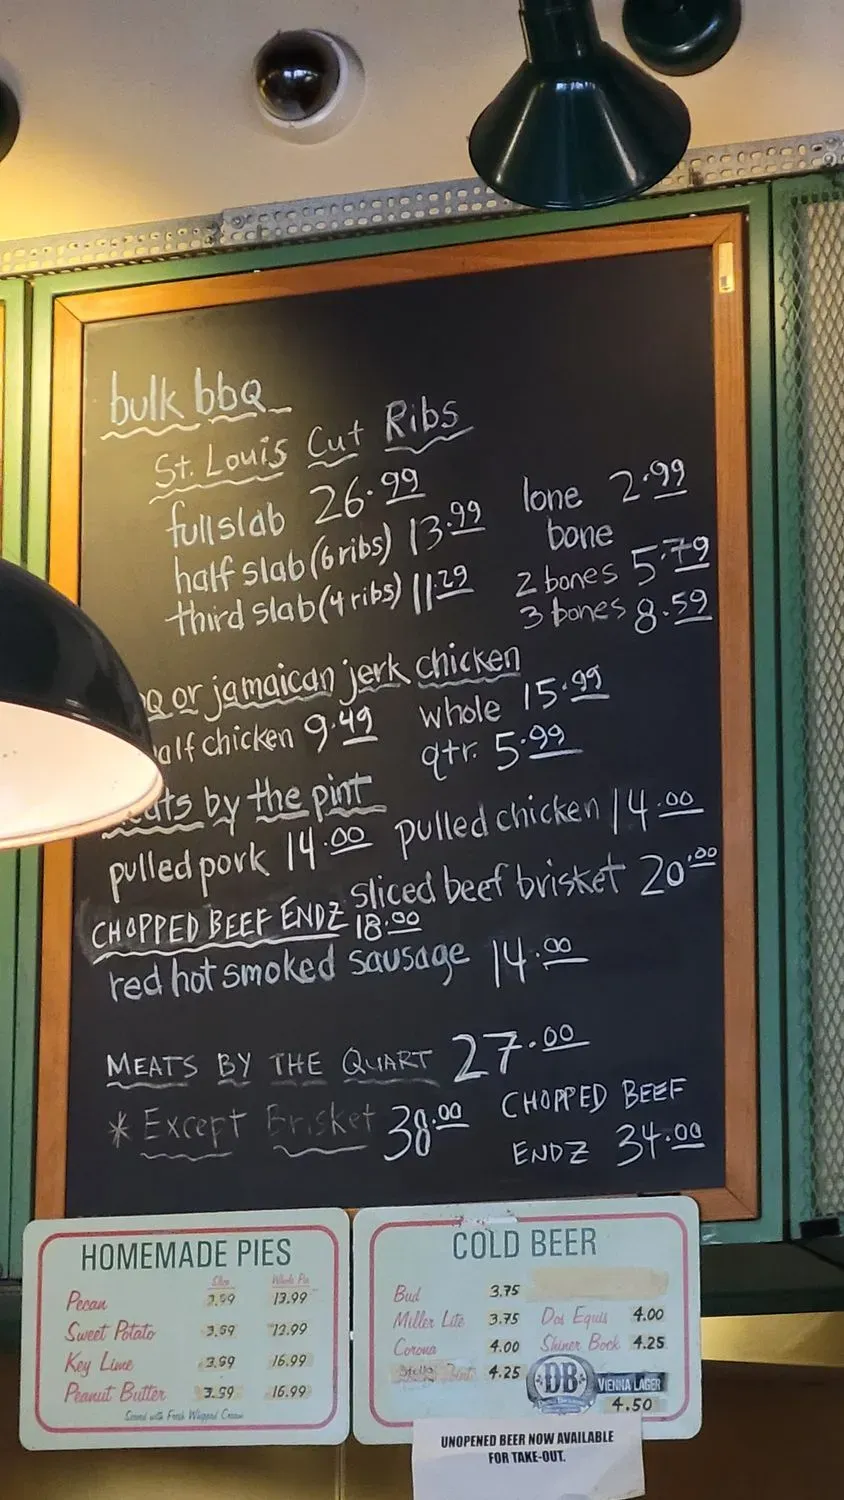 bulk bbq
St. Louis Cut Ribs
full slab 26.99
half slab (6 ribs) 13.99
third slab (4 ribs) 11.29
lone 2.99
bone
2 bones 5.79
3 bones 8.59
or jamaican jerk chicken
half chicken 9.49 whole 15.99
qtr. 5.99
meats by the pint
pulled pork 14.00 pulled chicken 14.00
sliced beef brisket 20.00
CHOPPED BEEF ENDZ 18.00
red hot smoked sausage 14.00
MEATS BY THE QUART 27.00
* Except Brisket 38.00
CHOPPED BEEF
ENDZ 34.00
HOMEMADE PIES
Slice Whole Pie
Pecan 3.99 13.99
Sweet Potato 3.59 12.99
Key Lime 3.59 16.99
Peanut Butter 3.59 16.99
Served with Fresh Whipped Cream
COLD BEER
Bud 3.75
Miller Lite 3.75 Dos Equis 4.00
Corona 4.00 Shiner Bock 4.25
Stella 4.25
DB VIENNA LAGER
4.50
UNOPENED BEER NOW AVAILABLE
FOR TAKE-OUT.